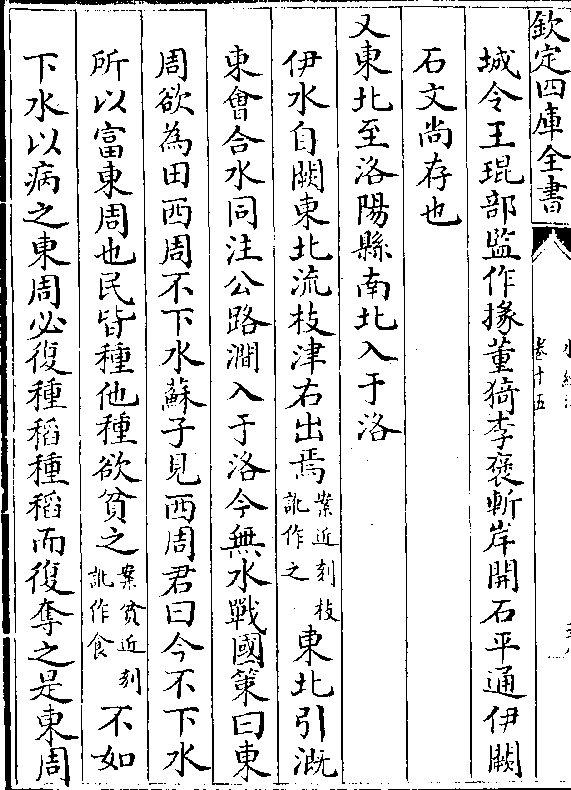 欽定四庫全書
卷十五
城令王琨部監作掾董猗李褒斬岸開石平通伊闕
石文尚存也
又東北至洛陽縣南北入于洛
伊水自闕東北流枝津右出焉案近刻枝訛作之東北引溉
東會合水同注公路澗入于洛今無水戰國策曰東
周欲為田西周不下水蘇子見西周君曰今不下水
所以富東周也民皆種他種欲貧之案貧近刻訛作食不如
下水以病之東周必復種稻種稻而復奪之是東周